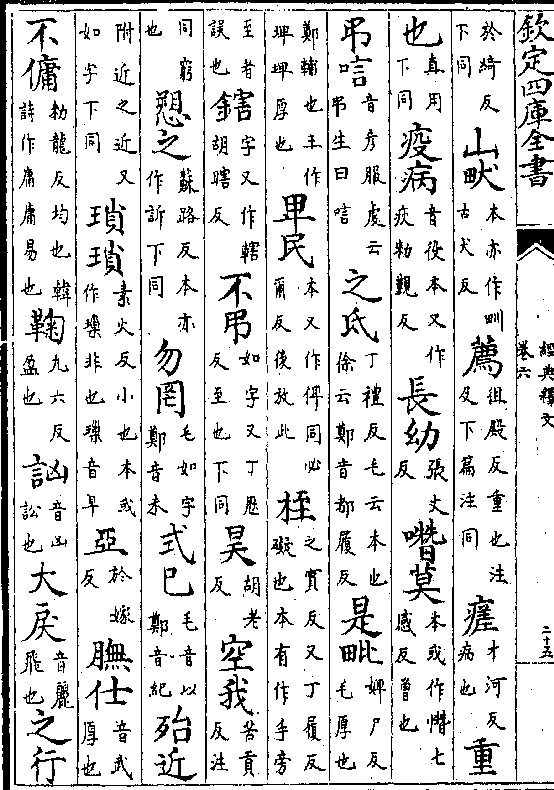 欽定四庫全書
經典釋文
卷六
二十五
於綺反下同山畎本亦作甽古犬反薦徂殿反重也注及下篇注同瘥才河反病也重
也直用下同疫病音役本又作疢勑覲反長幼張丈反噆莫本或作憯七感反曾也
弔唁音彥服虔云弔生曰唁之氐丁禮反毛云本也徐云鄭音都履反是毗婢尸反毛厚也
鄭輔也王作埤埤厚也卑民本又作俾同必爾反後放此桎之實反又丁履反礙也本有作手旁
至者誤也鎋字又作轄胡瞎反不弔如字又丁歷反至也下同昊胡老反空我苦貢反注
同窮也愬之蘇路反本亦作訴下同勿罔毛如字鄭音末式已毛音以鄭音紀殆近
附近之近又如字下同瑣瑣素火反小也本或作璅非也璅音早亞於嫁反膴仕音武厚也
不傭勑龍反均也韓詩作庸庸易也鞠九六反盈也訩音凶訟也大戾音麗乖也之行